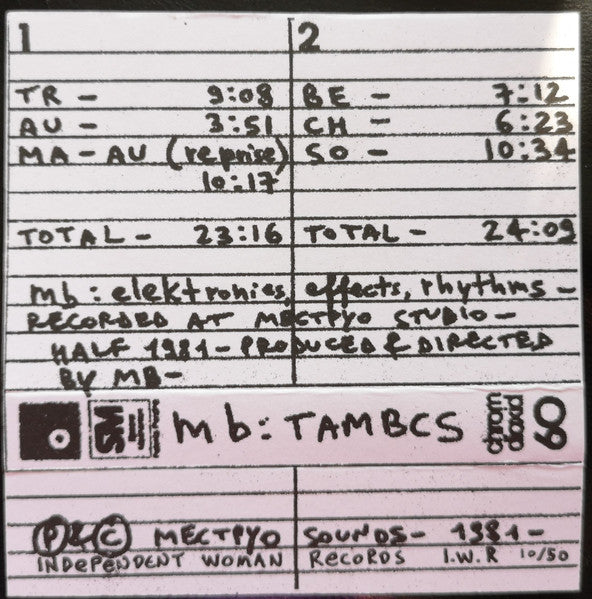 1
TR - 9:08
AU - 3:51
MA-AU (reprise)
10:17
TOTAL - 23:16
2
BE - 7:12
CH - 6:23
SO - 10:34
TOTAL - 24:09
mb: elektronics, effects, rhythms -
RECORDED AT MECTPYO STUDIO -
HALF 1981 - PRODUCED & DIRECTED
BY MB -
SM
mb: TAMBCS
chrom
60
P & C MECTPYO SOUNDS - 1981 -
INDEPENDENT WOMAN RECORDS I.W.R 10/50